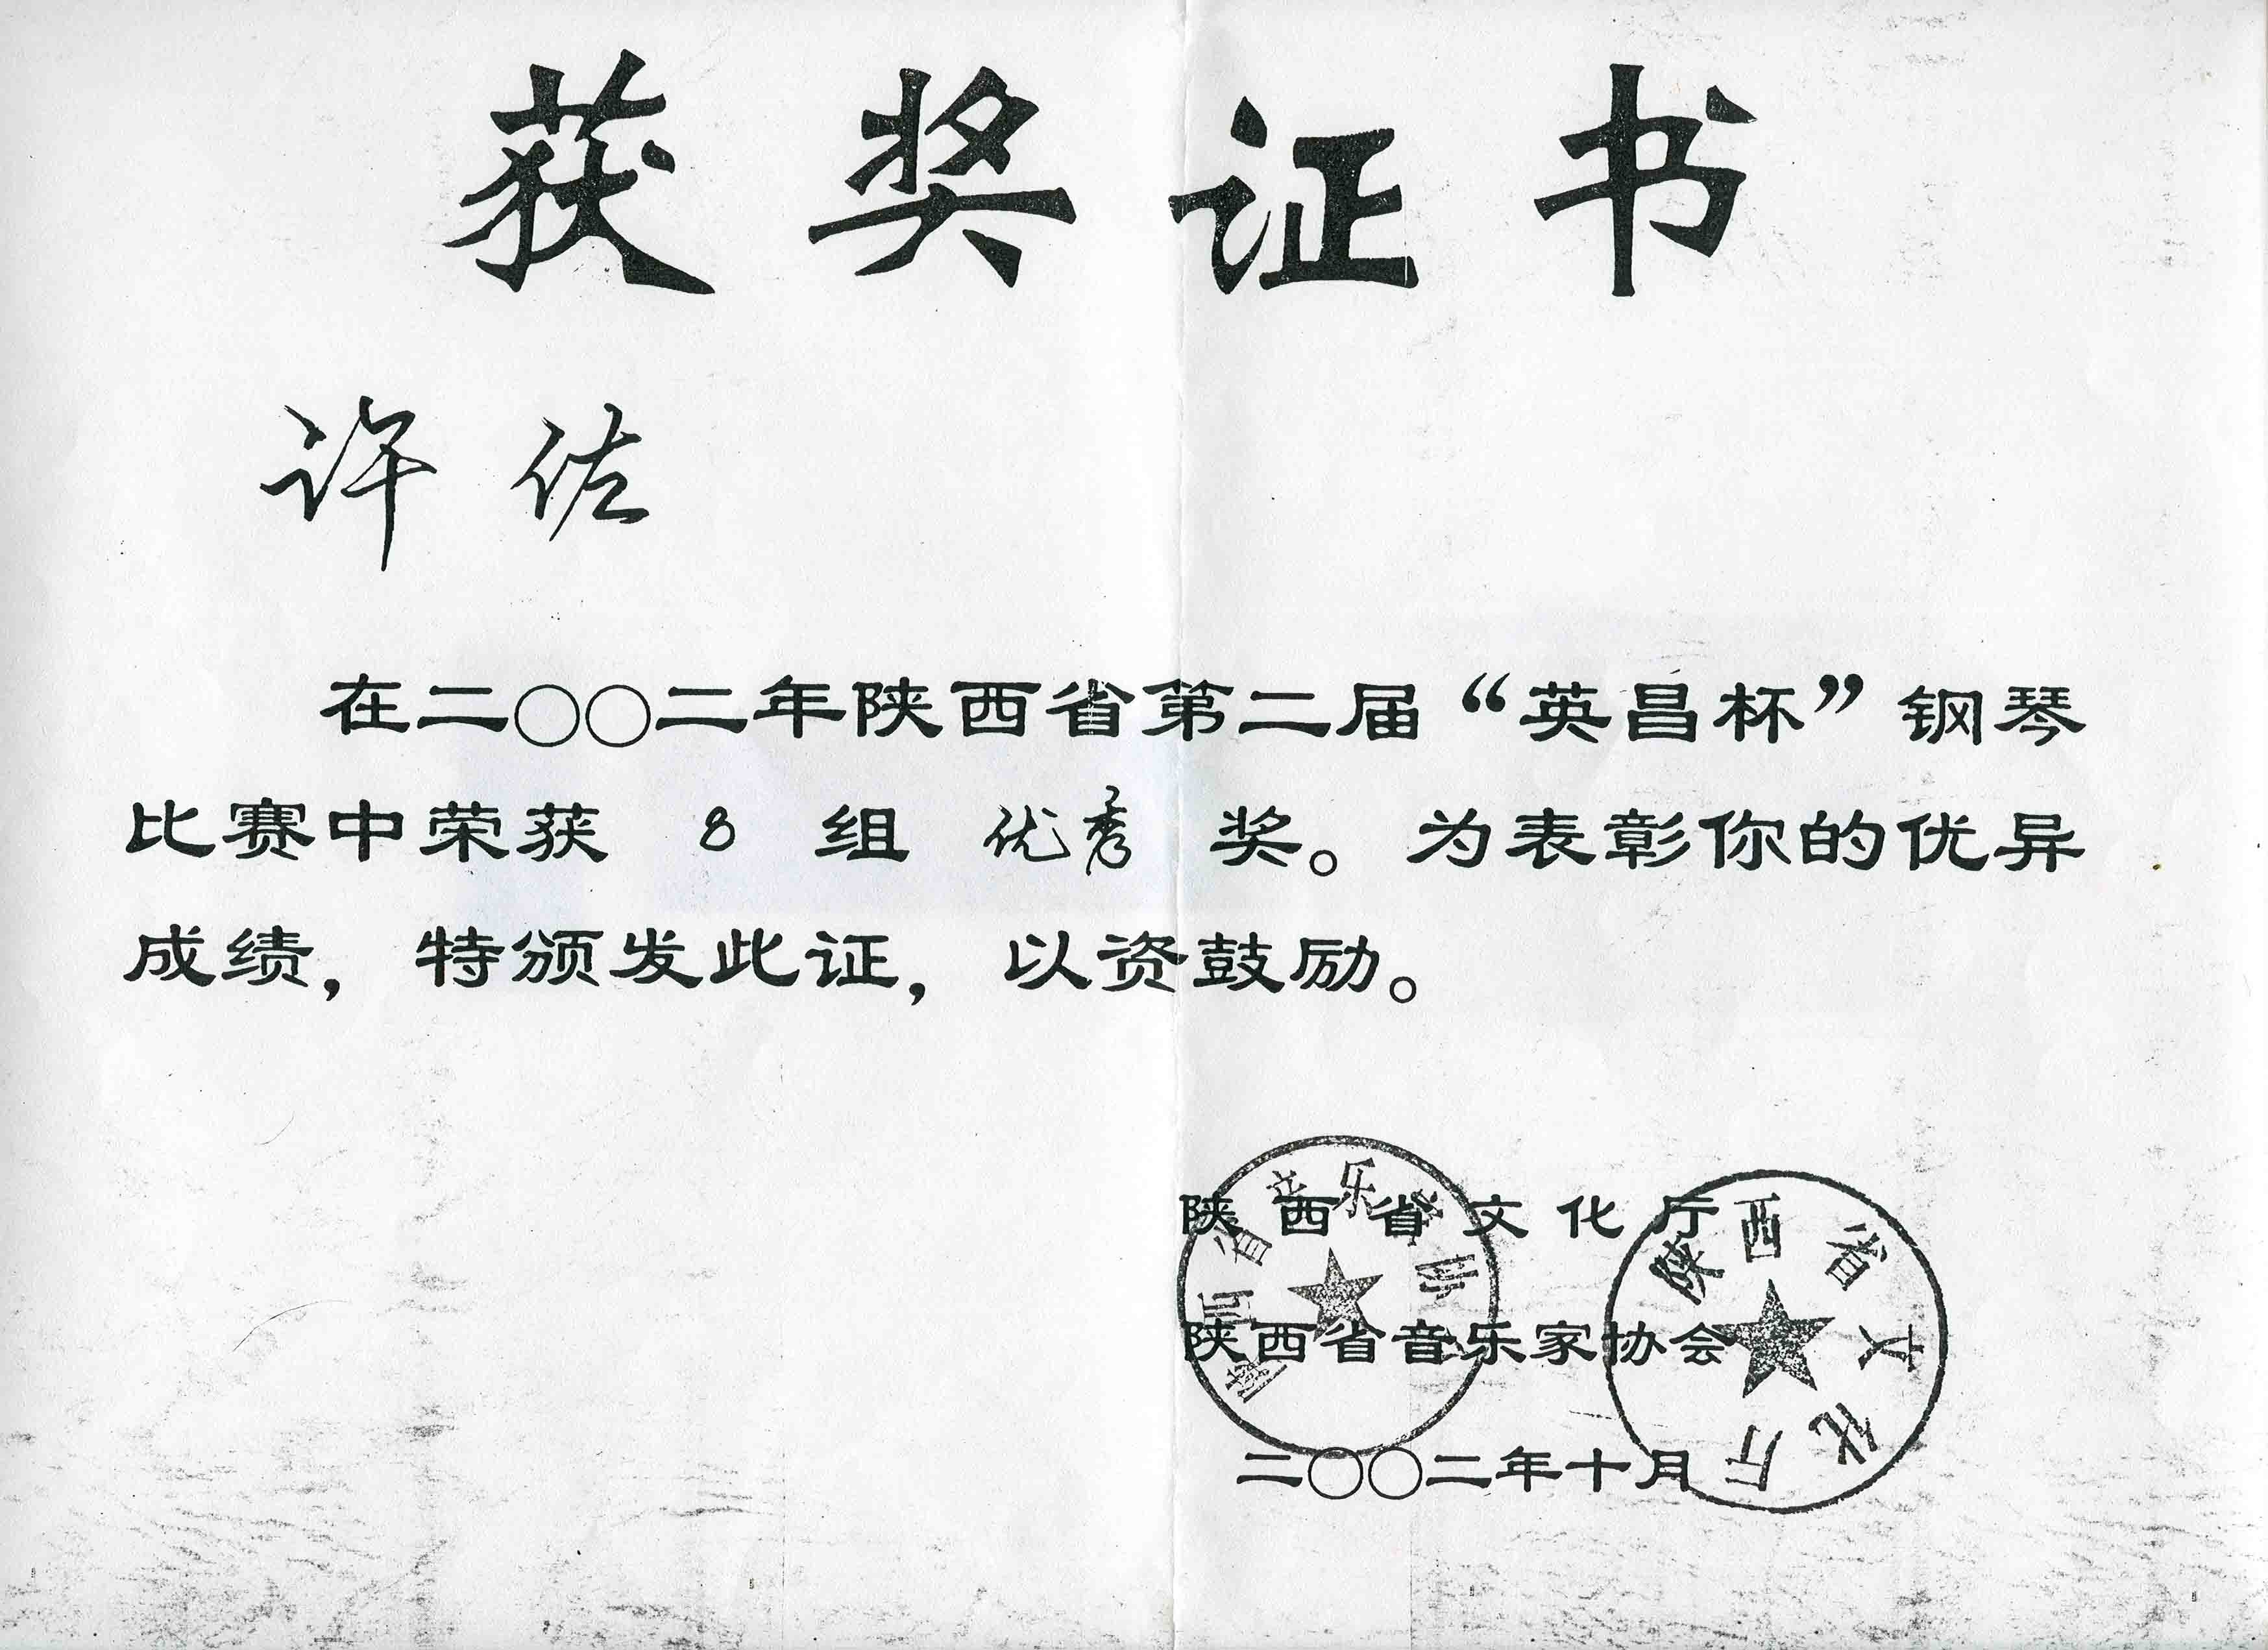 获奖证书
许佐
在二〇〇二年陕西省第二届“英昌杯”钢琴
比赛中荣获 8 组 优秀 奖。为表彰你的优异
成绩，特颁发此证，以资鼓励。
陕西省文化厅
陕西省音乐家协会
二〇〇二年十月
陕西省文化厅